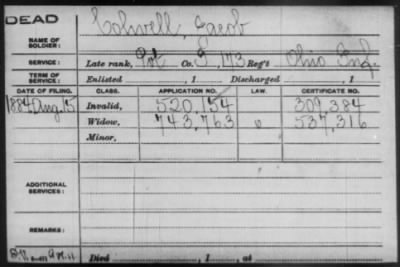 DEAD
Colwell, Jacob
NAME OF SOLDIER:
SERVICE: Late rank, Pvt Co. , 173 Reg't Ohio Inf.
TERM OF SERVICE: Enlisted , 1 Discharged , 1
DATE OF FILING. CLASS. APPLICATION NO. LAW. CERTIFICATE NO.
1884 Aug. 15 Invalid, 520,154 309,384
Widow, 743,763 537,316
Minor,
ADDITIONAL SERVICES:
REMARKS:
Died , 1 , at